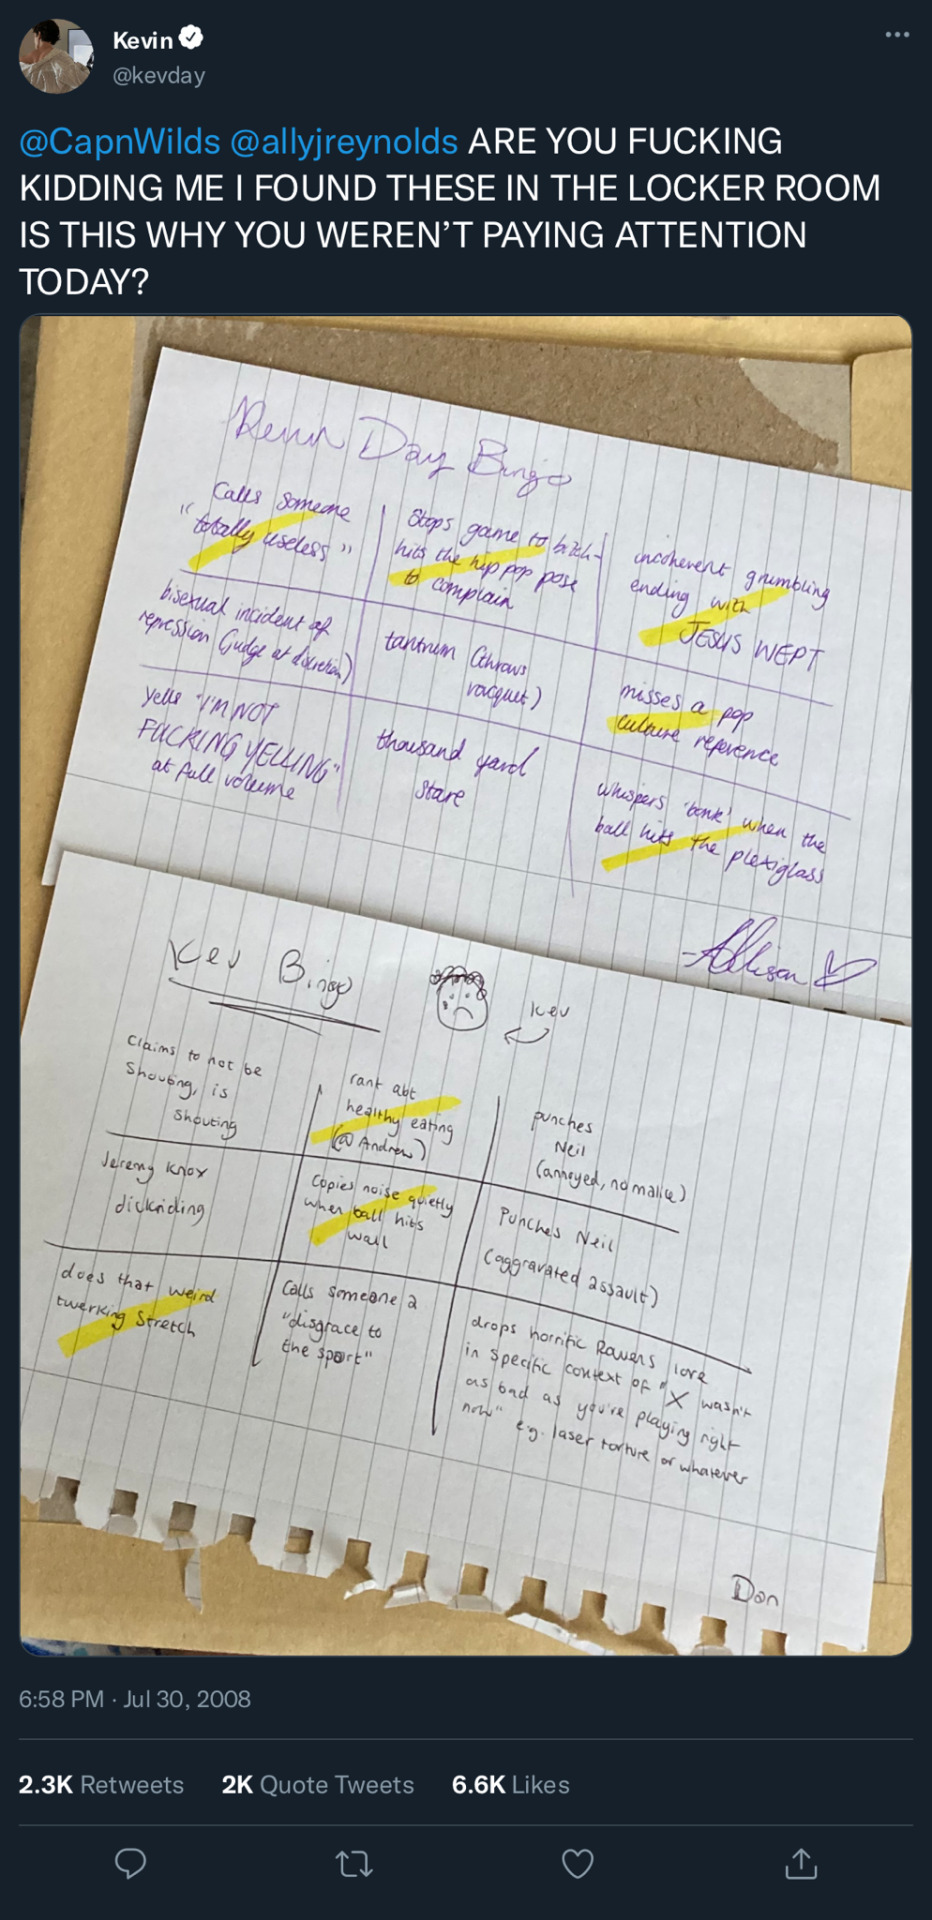 Kevin
@kevday
@CapnWilds @allyjreynolds ARE YOU FUCKING
KIDDING ME I FOUND THESE IN THE LOCKER ROOM
IS THIS WHY YOU WEREN’T PAYING ATTENTION
TODAY?
Day Bingo
Calls someone
"totally useless"
Stops game to bitch-
hits the hip pop pose
to complain
incoherent grumbling
ending with
JESUS WEPT
bisexual incident of
repression (judge at discretion)
tantrum (throws
racquet)
misses a pop
culture reference
yells "I'M NOT
FUCKING YELLING"
at full volume
thousand yard
stare
whispers 'bonk' when the
ball hits the plexiglass
-Allison
Kev Bingo
Kev
Claims to not be
Shouting, is
Shouting
rant abt
healthy eating
(@ Andrew)
punches
Neil
(annoyed, no malice)
Jeremy Knox
dickriding
Copies noise quietly
when ball hits
wall
Punches Neil
(aggravated assault)
does that weird
twerking stretch
Calls someone a
"disgrace to
the sport"
drops horrific Ravens lore
in specific context of "X wasn't
as bad as you're playing right
now" e.g. laser torture or whatever
Dan
6:58 PM · Jul 30, 2008
2.3K Retweets 2K Quote Tweets 6.6K Likes